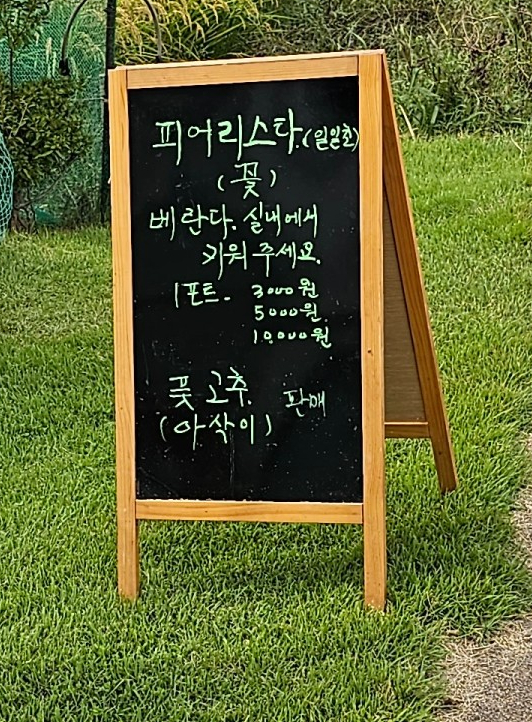 피어리스타.(일일초)
(꽃)
베란다. 실내에서
키워 주세요.
1포트. 3000원
5000원
10,000원
풋고추 판매
(아삭이)